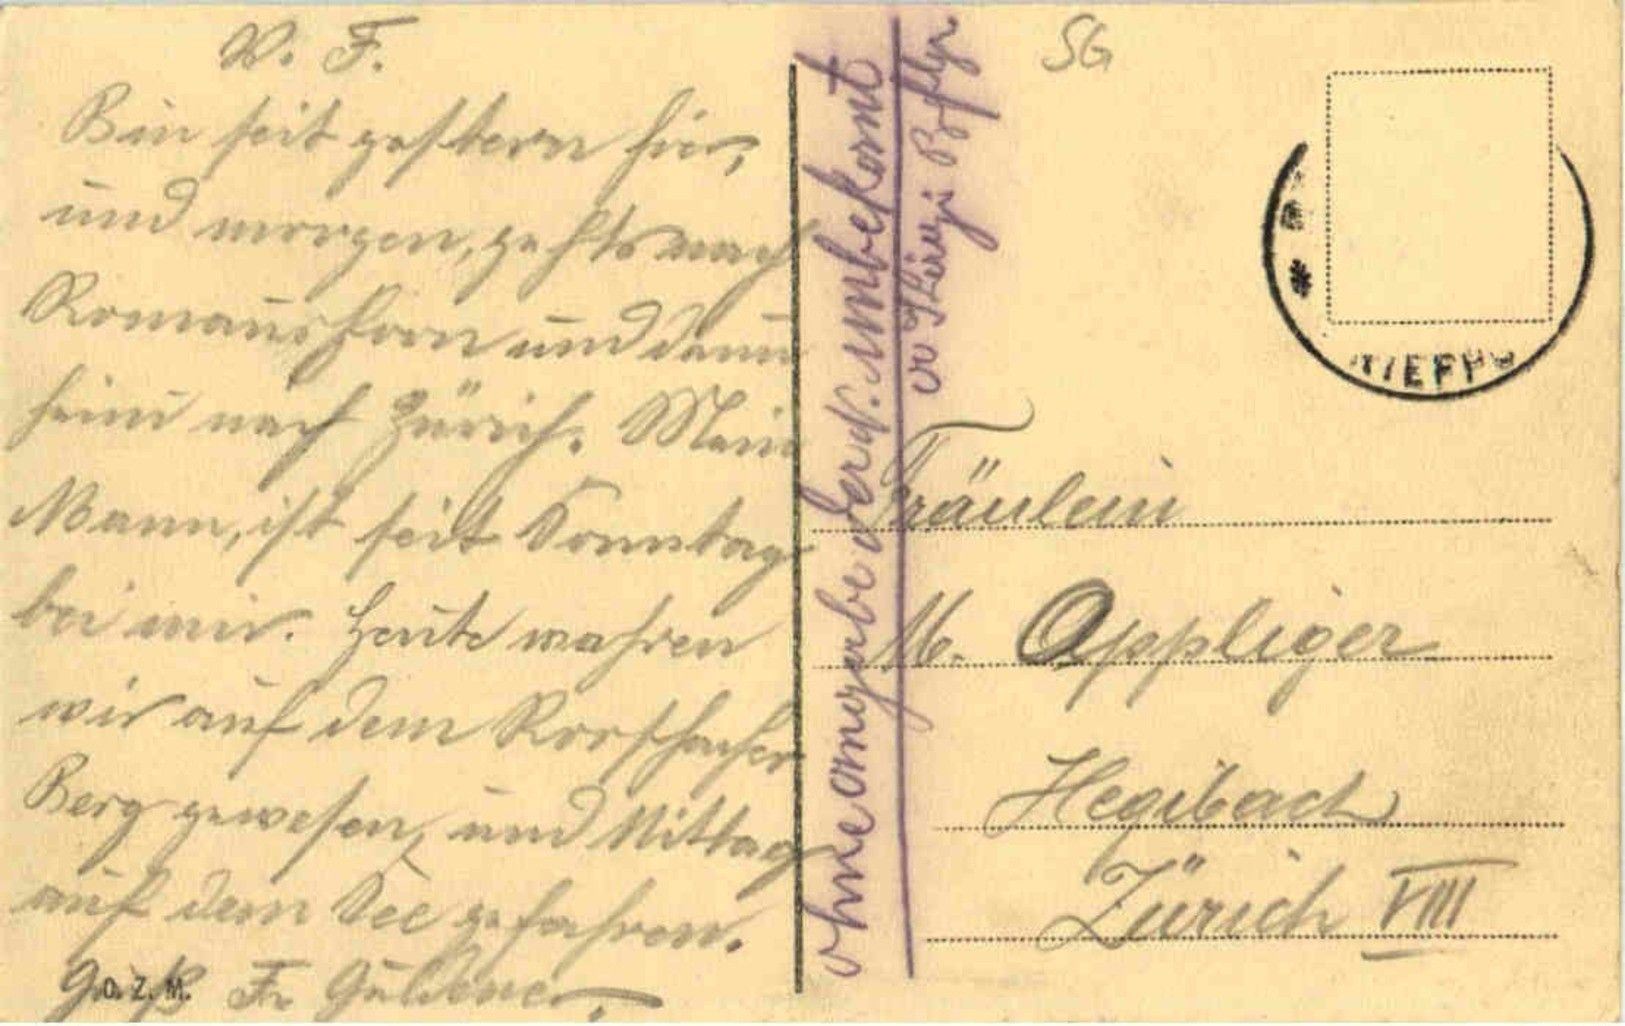 W. F.
Bin seit gestern hier,
und morgen, gehts nach
Romanshorn und dann
heim nach Zürich. Mein
Mann, ist seit Sonntag
bei mir. Heute wahren
wir auf dem Rorschacher
Berg gewesen, und Mittag
auf dem See gefahren.
Gruß Fr
G.O.Z.M.
ohne angabe der N. unbekannt
SG
Fräulein
M. Oppliger
Hegibach
Zürich VIII